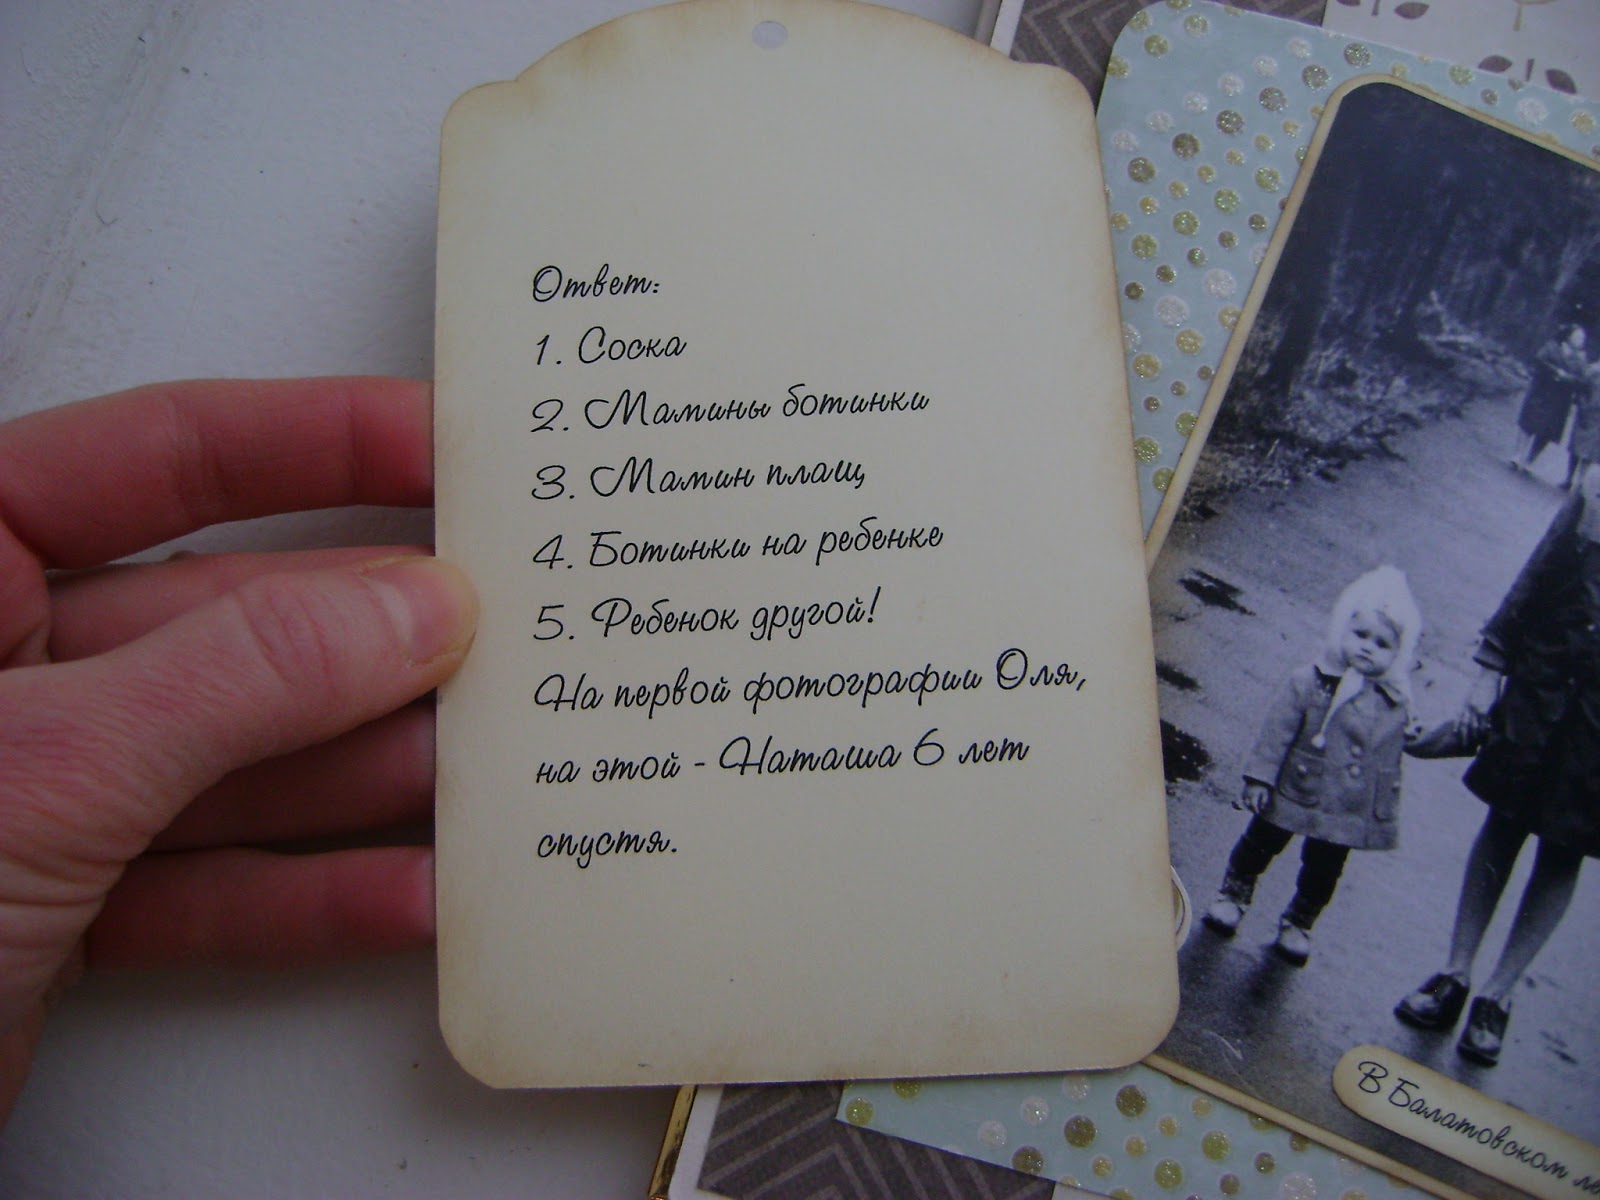 Ответ:
1. Соска
2. Мамины ботинки
3. Мамин плащ
4. Ботинки на ребенке
5. Ребенок другой!
На первой фотографии Оля,
на этой - Наташа 6 лет
спустя.
В Балатовском